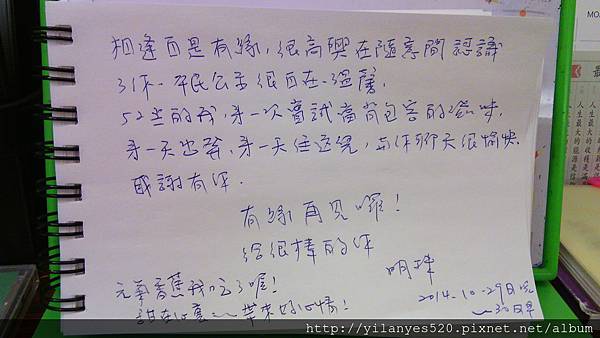 相逢而是有緣,很高興在隨意間認識
你.平民公主很自在、溫馨.
52岁的我,第一次嘗試當背包客的滋味.
第一天出發.第一天住這兒,与你聊天很愉快.
感謝有你.
有緣再見囉!
給很棒的你
明珠
元氣香蕉我吃了喔!
甜在心裏~帶來好心情!
2014.10.29日晚
~30日早
MO
人生最大的
http://yilanyes520.pixnet.net/album